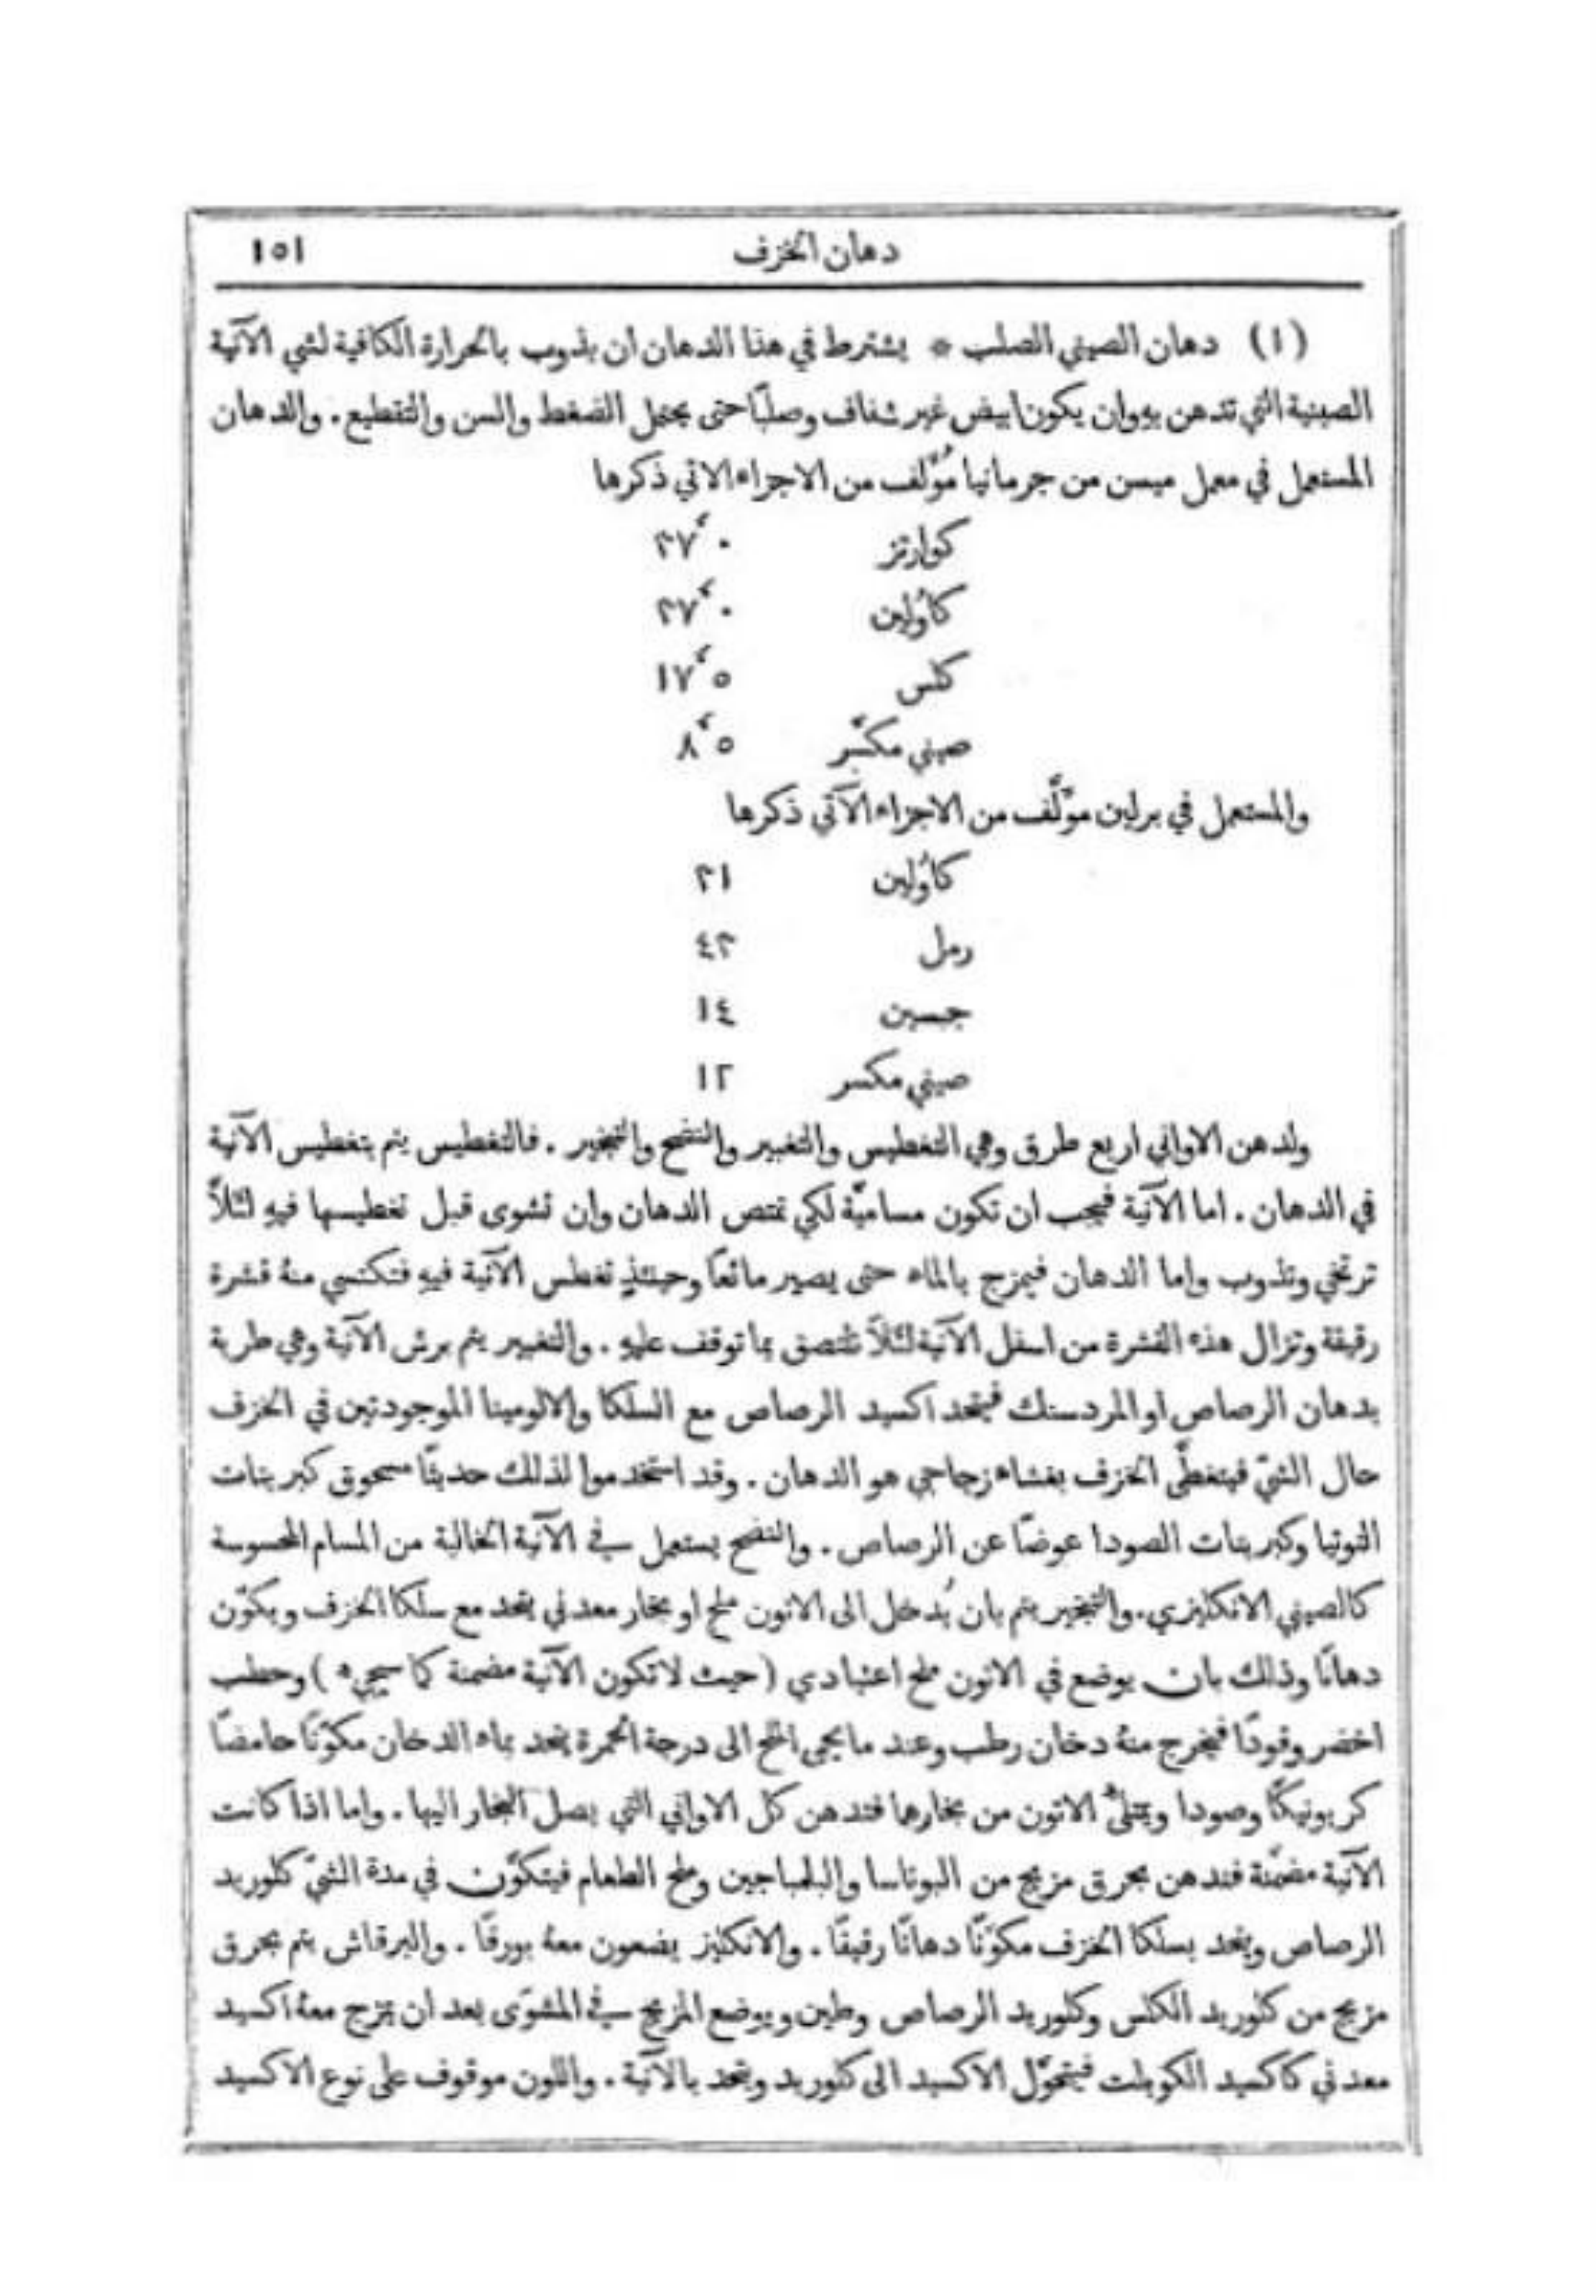 دهان الخزف ١٥١
(١) دهان الصيني الصلب * يشترط في هذا الدهان ان يذوب بالحرارة الكافية لشي الآنية
الصينية التي تدهن بهِ وان يكون ابيض غير شفاف وصلبًا حتى يحتمل الضغط والسن والتقطيع. والدهان
المستعمل في معمل ميسن من جرمانيا مُؤَلَّف من الاجزاء الاتي ذكرها
كوارتز ٣٧٬٠
كاؤلين ٣٧٬٠
كلس ١٧٬٥
صيني مكسَّر ٨٬٥
والمستعمل في برلين مؤَلَّف من الاجزاء الآتي ذكرها
كاؤلين ٣١
رمل ٤٣
جبسين ١٤
صيني مكسر ١٢
ولدهن الاواني اربع طرق وهي التغطيس والتغبير والنضح والتبخير. فالتغطيس يتم بتغطيس الآنية
في الدهان. اما الآنية فيجب ان تكون مساميَّة لكي تمتص الدهان وان تشوى قبل تغطيسها فيهِ لئلَّا
ترتخي وتذوب واما الدهان فيمزج بالماء حتى يصير مائعًا وحينئذٍ تغطس الآنية فيهِ فتكتسي منهُ قشرة
رقيقة وتزال هذه القشرة من اسفل الآنية لئلَّا تلتصق بما توقف عليهِ. والتغبير يتم برش الآنية وهي طرية
بدهان الرصاص او المردسنك فيتحد اكسيد الرصاص مع السلكا والالومينا الموجودتين في الخزف
حال الشيّ فيتغطَّى الخزف بغشاء زجاجي هو الدهان. وقد استخدموا لذلك حديثًا مسحوق كبريتات
التوتيا وكبريتات الصودا عوضًا عن الرصاص. والنضح يستعمل في الآنية الخالية من المسام المحسوسة
كالصيني الانكليزي. والتبخير يتم بان يُدخل الى الاتون ملح او بخار معدني يتحد مع سلكا الخزف ويكوّن
دهانًا وذلك بان يوضع في الاتون ملح اعتيادي (حيث لا تكون الآنية مضمنة كما سيجيء) وحطب
اخضر وقودًا فيخرج منهُ دخان رطب وعند ما يحمى الملح الى درجة الحمرة يتحد بماء الدخان مكوّنًا حامضًا
كربونيكًا وصودا ويمتلئُ الاتون من بخارها فتدهن كل الاواني التي يصل البخار اليها. واما اذا كانت
الآنية مضمَّنة فتدهن بحرق مزيج من البوتاسا والبلمباجين وملح الطعام فيتكوَّن في مدة الشيّ كلوريد
الرصاص ويتحد بسلكا الخزف مكوّنًا دهانًا رقيقًا. والانكليز يضعون معهُ بورقًا. والبرقاش يتم بحرق
مزيج من كلوريد الكلس وكلوريد الرصاص وطين ويوضع المزيج في المشوَى بعد ان يمزج معهُ اكسيد
معدني كاكسيد الكوبلت فيتحوَّل الاكسيد الى كلوريد ويتحد بالآنية. واللون موقوف على نوع الاكسيد